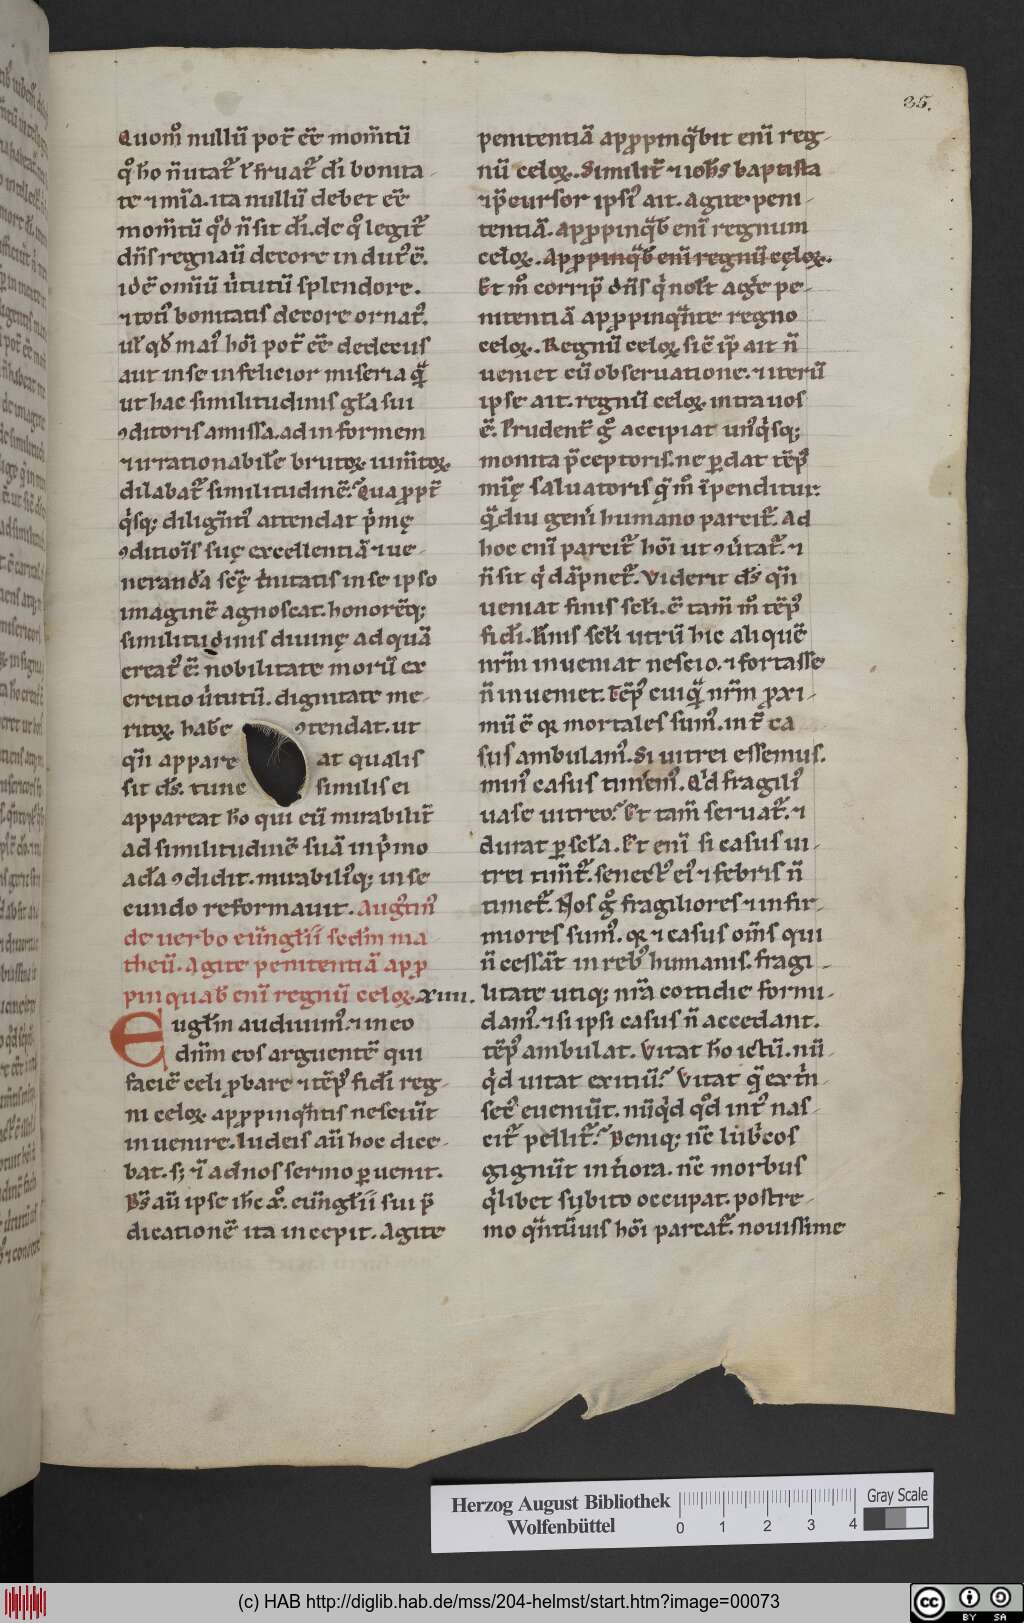 35.
Quom̊ nullū pot̄ eē̄ mom̄tū
q̊ h̊o n̄ utat᷑ ł fruat᷑ dī bonita
te ⁊ mīa. ita nullū debet eē̄
mom̄tū q̊d n̄ sit dī. de q̊ legit᷑
dn̄s regnaū decore indut᷒ ē.
idē omīū u̓tutū splendore.
⁊ toti᷒ bonitatis decore ornat᷒.
ul̄ qd̄ mai᷒ hōi pot̄ eē̄ dedecus
aut in se infelicior miseria qᷓ
ut hac similitudinis gl̄a sui
ꝯditoris amissa. ad informem
⁊ irrationabilē brutoꝝ ium̄toꝝ
dilabat᷑ similitudinē. Quapropt̄
q̓sq; dilign̄ti᷒ attendat p̓mę
ꝯditiōis suę excellentiā ⁊ ue-
neranda scę̄ t̓nitatis in se ipso
imaginē agnoscat. honorēq;
similitudinis diuinę ad quā
creat᷒ ē. nobilitate morū ex
ercitio u̓tutū. dignitate me-
ritoꝝ. habe ꝯtendat. ut
qn̄ appare at qualis
sit ds̄. tunc similis ei
appareat h̊o qui eū mirabilit̄
ad similitudinē suā in p̓mo
adā ꝯdidit. mirabili᷒q; in se
cundo reformauit. Augr̄tin᷒
de uerbo eūnglii sedm̄ ma
theū. Agite penitentiā ap ꝓ
pinquab̄ enī regnū celoꝝ. xiiii.
Euglm̄ audiuim᷒. ⁊ in eo
dn̄m eos arguentē qui
faciē celi ꝓbare ⁊ tēp᷒ fidī reg-
ni celoꝝ apꝓpinqᷓntis nesciūt
inuenire. Iudeis aū hoc dice-
bat. s; ⁊ī ad nos sermo ꝑuenit.
Ds̄ aū ipse ih̄c x̊c. eūnglii sui p̄
dicationē ita incepit. Agite
penitentiā apꝓpinqᷓbit enī reg-
nū celoꝝ. Similit᷑ ⁊ ioh̄s baptista
⁊ p̄cursor ipsi᷒ ait. Agite peni-
tentiā. Apꝓpinqᷓb̄ enī regnum
celoꝝ. Apꝓpinqᷓb̄ enī regnū cęloꝝ.
Et m̊ corrip̄ dn̄s q̓ nolt̄ agē pe-
nitentiā apꝓpinqᷓnte regno
celoꝝ. Regnū celoꝝ sic̄ ip̄ ait n̄
ueniet cū obseruatione. ⁊ iterū
ipse ait. regnū celoꝝ intra uos
ē. Prudent̄ g̊ accipiat un᷒q̓sq;
monita p̄ceptoris. ne ꝑdat tēp᷒
mīę saluatoris qᷓ m̊ īpenditur.
qᷓdiu geni̓ humano parcit᷑. Ad
hoc enī parcit᷑ hōi ut ꝯu̓tat᷑. ⁊
n̄ sit q̓ dāpnet᷑. Viderit ds̄ qn̄
ueniat finis secl̄i. ē tam̄ m̊ tēp᷒
fidī. Finis secl̄i utrū hic aliquē
nrm̄ inueniat nescio. ⁊ fortasse
n̄ inueniet. Tēp᷒ cuiqᷓ nrm̄ ꝓxi-
mū ē qꝛ mortales sum᷒. int̄ ca
sus ambulam᷒. Si uitrei essemus.
min᷒ casus timerem᷒. Q̓d fragili᷒
uase uitreo? Et tam̄ seruat᷑. ⁊
durat ꝑ secl̄a. Et enī si casus ui-
trei timet᷑. senect᷒ ei᷒ ⁊ febris n̄
timet᷑. Nos g̊ fragiliores ⁊ infir-
miores sum᷒. qꝛ ⁊ casus om̄s qui
n̄ cessāt in reb᷒ humanis. fragi-
litate utiq; nrā cottidie formi-
dam᷒. ⁊ si ipsi casus n̄ accedant.
tēp᷒ ambulat. Vitat h̊o ictū. nū
q̓d uitat exitiū? Vitat qᷓ ext̓n
sec᷒ eueniūt. nūq̓d q̊d int᷒ nas-
cit᷑ pellit᷑? Deniq; nc̄ lūb̓cos
gignūt int̓iora. nc̄ morbus
q̓libet subito occupat. postre-
mo qᷓntūuis hōi parcat᷑. nouissime
Herzog August Bibliothek
Wolfenbüttel
0 1 2 3 4
Gray Scale
(c) HAB http://diglib.hab.de/mss/204-helmst/start.htm?image=00073
cc BY SA